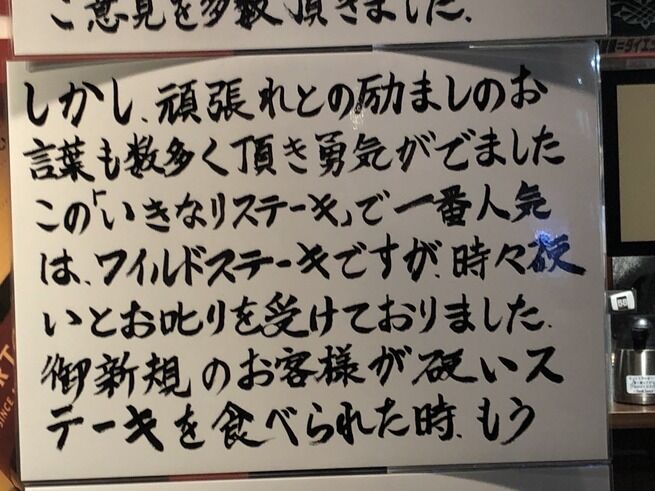 ご意見を多数頂きました、
しかし、頑張れとの励ましのお
言葉も数多く頂き勇気がでました
この「いきなりステーキ」で一番人気
は、ワイルドステーキですが、時々硬
いとお叱りを受けております。
御新規のお客様が硬いス
テーキを食べられた時、もう